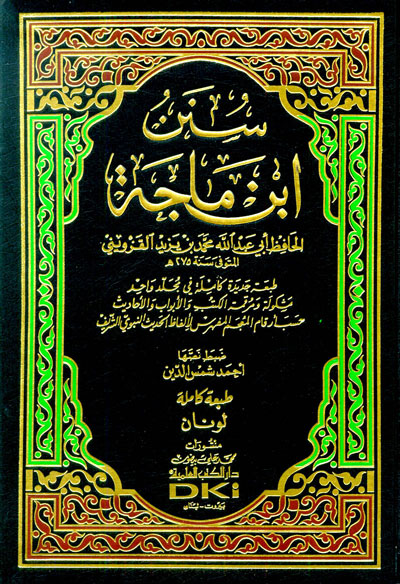 سُنَنُ
ابْنِ مَاجَة
الحَافِظ أَبِي عَبْدِ اللَّه مُحَمَّد بْن يَزِيد القَزْوِينِي
المتوفى سنة ٢٧٥ هـ
طبعة جديدة كاملة في مجلد واحد
مشكولة ومرقمة الكتب والأبواب والأحاديث
حسب أرقام المعجم المفهرس لألفاظ الحديث النبوي الشريف
ضبط نصها
أحمد شمس الدين
طبعة كاملة
لونان
منشورات
محمد علي بيضون
دار الكتب العلمية
DKi
بيروت - لبنان